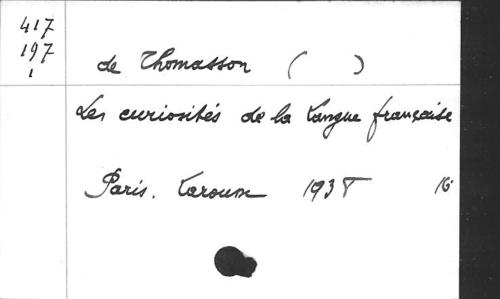 417
197
1
de Thomasson ( )
Les curiosités de la langue française
Paris. Larousse 1938 16°